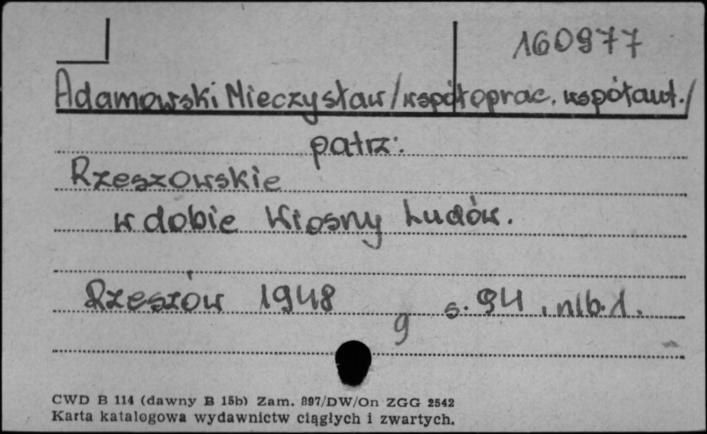 160977
Adamowski Mieczysław /współoprac. współaut./
patrz:
Rzeszowskie
w dobie Wiosny Ludów.
Rzeszów 1948 s. 94, nlb. 1.
9
CWD B 114 (dawny B 15b) Zam. 897/DW/On ZGG 2542
Karta katalogowa wydawnictw ciągłych i zwartych.